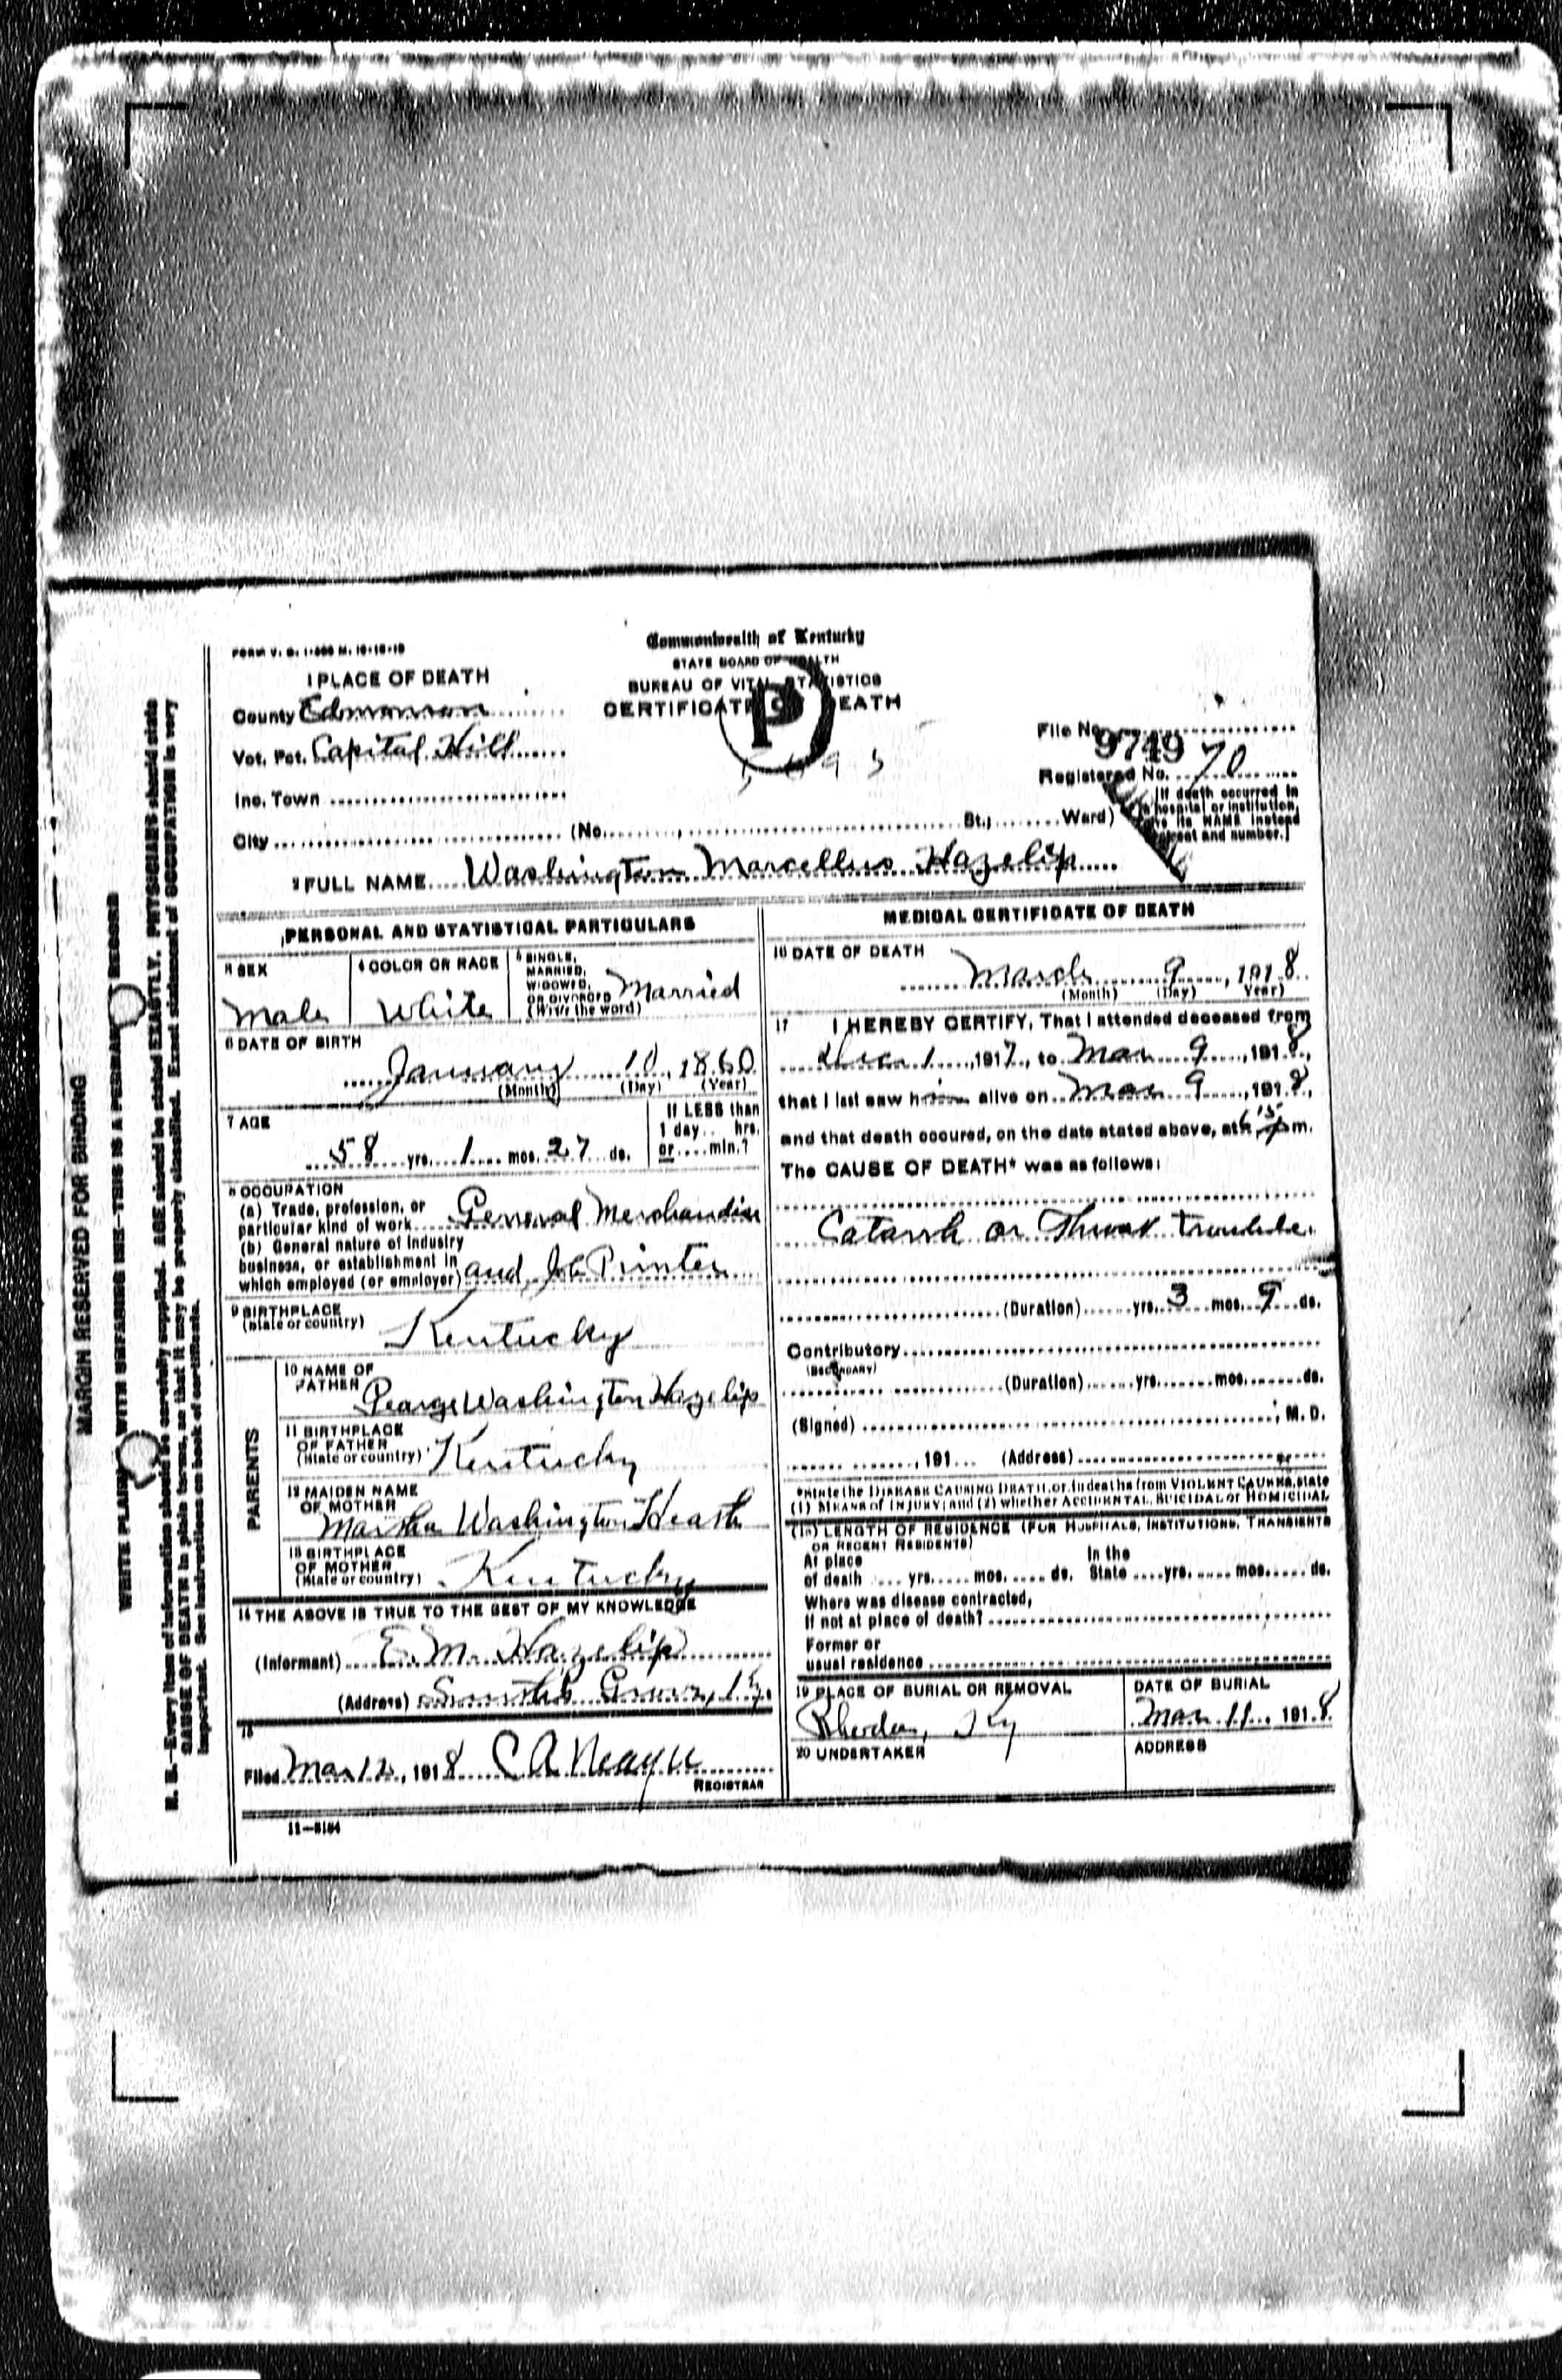 Commonwealth of Kentucky
STATE BOARD OF HEALTH
BUREAU OF VITAL STATISTICS
CERTIFICATE OF DEATH
P
1 PLACE OF DEATH
County Edmonson
Vot. Pct. Capital Hill
Inc. Town
City (No. St., Ward)
File No. 9749
Registered No. 70
(If death occurred in
a hospital or institution,
give its NAME instead
of street and number.)
2 FULL NAME Washington Marcellus Hazelip
PERSONAL AND STATISTICAL PARTICULARS
3 SEX
Male
4 COLOR OR RACE
White
5 SINGLE,
MARRIED,
WIDOWED,
OR DIVORCED
(Write the word)
Married
6 DATE OF BIRTH
January 10, 1860
(Month) (Day) (Year)
7 AGE
58 yrs. 1 mos. 27 ds.
If LESS than
1 day.. hrs.
or.... min.?
8 OCCUPATION
(a) Trade, profession, or
particular kind of work General Merchandise
(b) General nature of industry
business, or establishment in
which employed (or employer) and Job Printer
9 BIRTHPLACE
(State or country) Kentucky
PARENTS
10 NAME OF
FATHER Washington Hazelip
11 BIRTHPLACE
OF FATHER
(State or country) Kentucky
12 MAIDEN NAME
OF MOTHER
Martha Washington
13 BIRTHPLACE
OF MOTHER
(State or country) Kentucky
14 THE ABOVE IS TRUE TO THE BEST OF MY KNOWLEDGE
(Informant) E. M. Hazelip
(Address) Smith's Grove, Ky.
15
Filed Mar 12, 1918
REGISTRAR
11-3184
MEDICAL CERTIFICATE OF DEATH
16 DATE OF DEATH
March 9, 1918
(Month) (Day) Year)
17 I HEREBY CERTIFY, That I attended deceased from
Dec 1, 1917, to Mar 9, 1918,
that I last saw him alive on Mar 9, 1918,
and that death occured, on the date stated above, at m.
The CAUSE OF DEATH* was as follows:
Catarrh or Throat trouble.
(Duration) yrs. 3 mos. 9 ds.
Contributory
(SECONDARY)
(Duration) yrs. mos. ds.
(Signed) , M. D.
, 191 (Address)
*State the DISEASE CAUSING DEATH, or, in deaths from VIOLENT CAUSES, state
(1) MEANS of INJURY; and (2) whether ACCIDENTAL, SUICIDAL or HOMICIDAL
(18) LENGTH OF RESIDENCE (FOR HOSPITALS, INSTITUTIONS, TRANSIENTS
OR RECENT RESIDENTS)
At place
of death yrs. mos. ds.
In the
State yrs. mos. ds.
Where was disease contracted,
If not at place of death?
Former or
usual residence
19 PLACE OF BURIAL OR REMOVAL
Rhoda, Ky
DATE OF BURIAL
Mar 11, 1918
20 UNDERTAKER
ADDRESS
MARGIN RESERVED FOR BINDING
WRITE PLAINLY WITH UNFADING INK—THIS IS A PERMANENT RECORD
N. B.—Every item of information should be carefully supplied. AGE should be stated EXACTLY. PHYSICIANS should state
CAUSE OF DEATH in plain terms, so that it may be properly classified. Exact statement of OCCUPATION is very
important. See instructions on back of certificate.